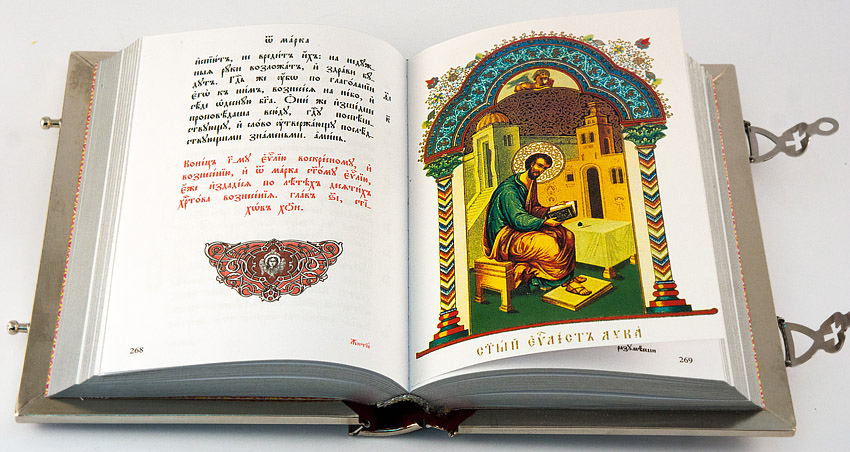 Ѿ ма́рка
и҆спїю́тъ, не вреди́тъ и҆́хъ: на недꙋ́ж-
ныѧ рꙋ́ки возложа́тъ, и҆ здра́ви бꙋ́-
дꙋтъ. Гдⷭ҇ь же ᲂу҆́бѡ по глаго́ланїи
є҆гѡ̀ къ ни̑мъ, вознесе́сѧ на не́бо, и҆
сѣ́де ѡ҆деснꙋ́ю бг҃а. Ѻ҆ни́ же и҆зше́дше
проповѣ́даша всю́дꙋ, гдⷭ҇ꙋ поспѣ́ш-
ствꙋющꙋ, и҆ сло́во ᲂу҆твержда́ющꙋ послѣ́д-
ствꙋющими зна́меньми. а҆ми́нь.
Коне́цъ г҃-мꙋ є҆ѵⷢ҇лїю воскре́сномꙋ, и҆
вознесе́нїю, и҆ ѿ ма́рка ст҃о́мꙋ є҆ѵⷢ҇лїю,
є҆́же и҆здаде́сѧ по лѣ́тѣхъ десѧти́хъ
хрⷭ҇то́ва вознесе́нїѧ. гла́въ ѕ҃і, сті-
хѡ́въ
268
Житїѐ
ст҃ы́й є҆ѵⷢ҇лі́стъ лꙋка̀
269